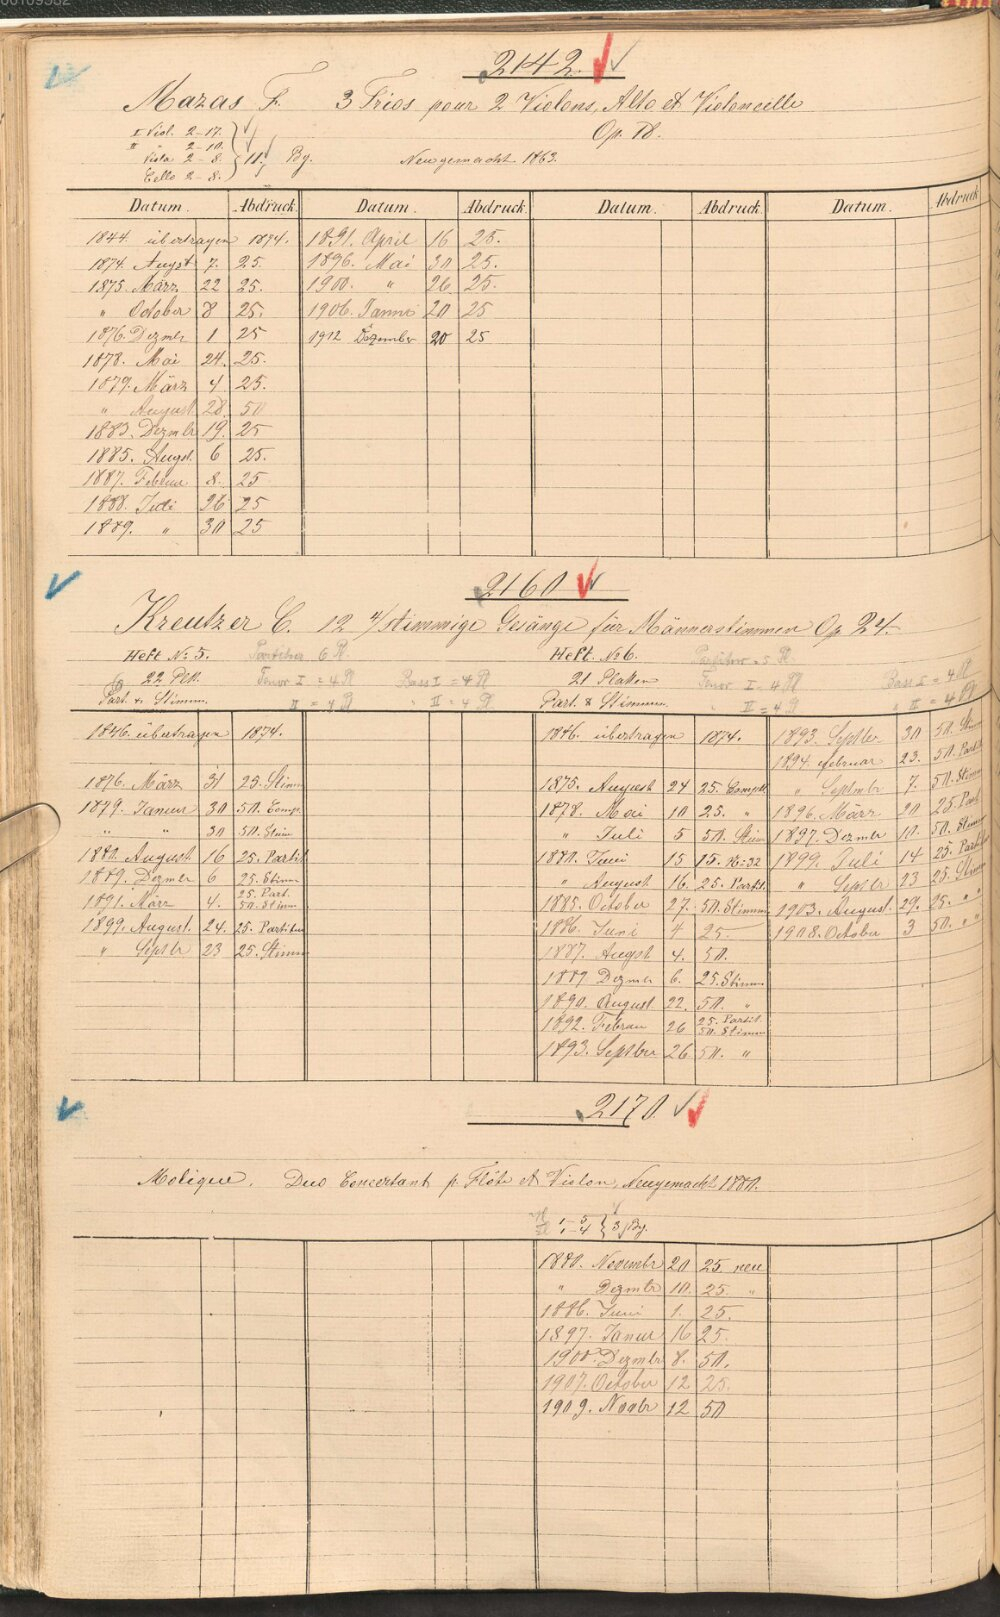 2142.
Mazas F. 3 Trios pour 2 Violons, Alto et Violoncelle
Op. 18.
I Viol. 2-17.
II " 2-10.
Viola 2-8.
Cello 2-8.
Neugemacht 1863.
Datum. Abdruck Datum. Abdruck Datum. Abdruck Datum. Abdruck
1844. übertragen 1874. 1891. April 16 25.
1874. Augst 7. 25. 1896. Mai 30 25.
1875. März 22 25. 1900. " 26 25.
" October 8 25. 1906. Januar 20 25
1876. Dezmbr 1 25 1912 Dezember 20 25
1878. Mai 24. 25.
1879. März 4 25.
" August 28. 50
1883. Dezmbr 19. 25
1885. Augst. 6 25.
1887. Februar 8. 25
1888. Juli 26 25
1889. " 30 25
2160
Kreutzer C. 12 4/stimmige Gesänge für Männerstimmen Op 24.
Heft No 5. Partitur 6 Pl. Heft. No 6. Partitur = 5 Pl.
22 Plt. Tenor I = 4 Pl Bass I = 4 Pl 21 Platten Tenor I = 4 Pl Bass I = 4 Pl
Part. & Stimmen. II = 4 Pl " II = 4 Pl Part. & Stimmen. " II = 4 Pl " II = 4 Pl
1846. übertragen 1874. 1846. übertragen 1874. 1893. Septbr. 30 50. Stim
1894. Februar 23. 50. Partit
1876. März 31 25. Stimm 1875. August 24 25. Complt " Septmbr 7. 50. Stimm
1879. Januar 30 50. Compl. 1878. Mai 10 25. " 1896. März 20 25. Part.
" " 30 50. Stim " Juli 5 50. Stim 1897. Dezmbr 10. 50. Stimm
1880. August 16 25. Partit 1880. Juni 15 15. No: 32 1899. Juli 14 25. Partitur
1889. Dezmbr 6 25. Stimm " August 16. 25. Partit. " Septbr 23 25. Stimm
1891. März 4. 25. Part. 50. Stimm 1885. October 27. 50. Stimm 1903. August. 29. 25. "
1899. August. 24. 25. Partitur 1886. Juni 4 25. 1908. October 3 50. "
" Septbr 23 25. Stimm 1887. Augst 4. 50.
1889 Dezmbr 6. 25. Stimm
1890. August 22. 50. "
1892. Februar 26 25. Partit 50. Stimm
1893. Septber 26 50. "
2170.
Molique. Duo Concertant p. Flöte et Violon, Neugemacht 1880.
1880. Novembr 20 25 neu
" Dezmbr 10. 25. "
1886. Juni 1. 25.
1897. Januar 16 25.
1900. Dezmbr 8. 50.
1907. October 12 25.
1909. Novbr 12 50